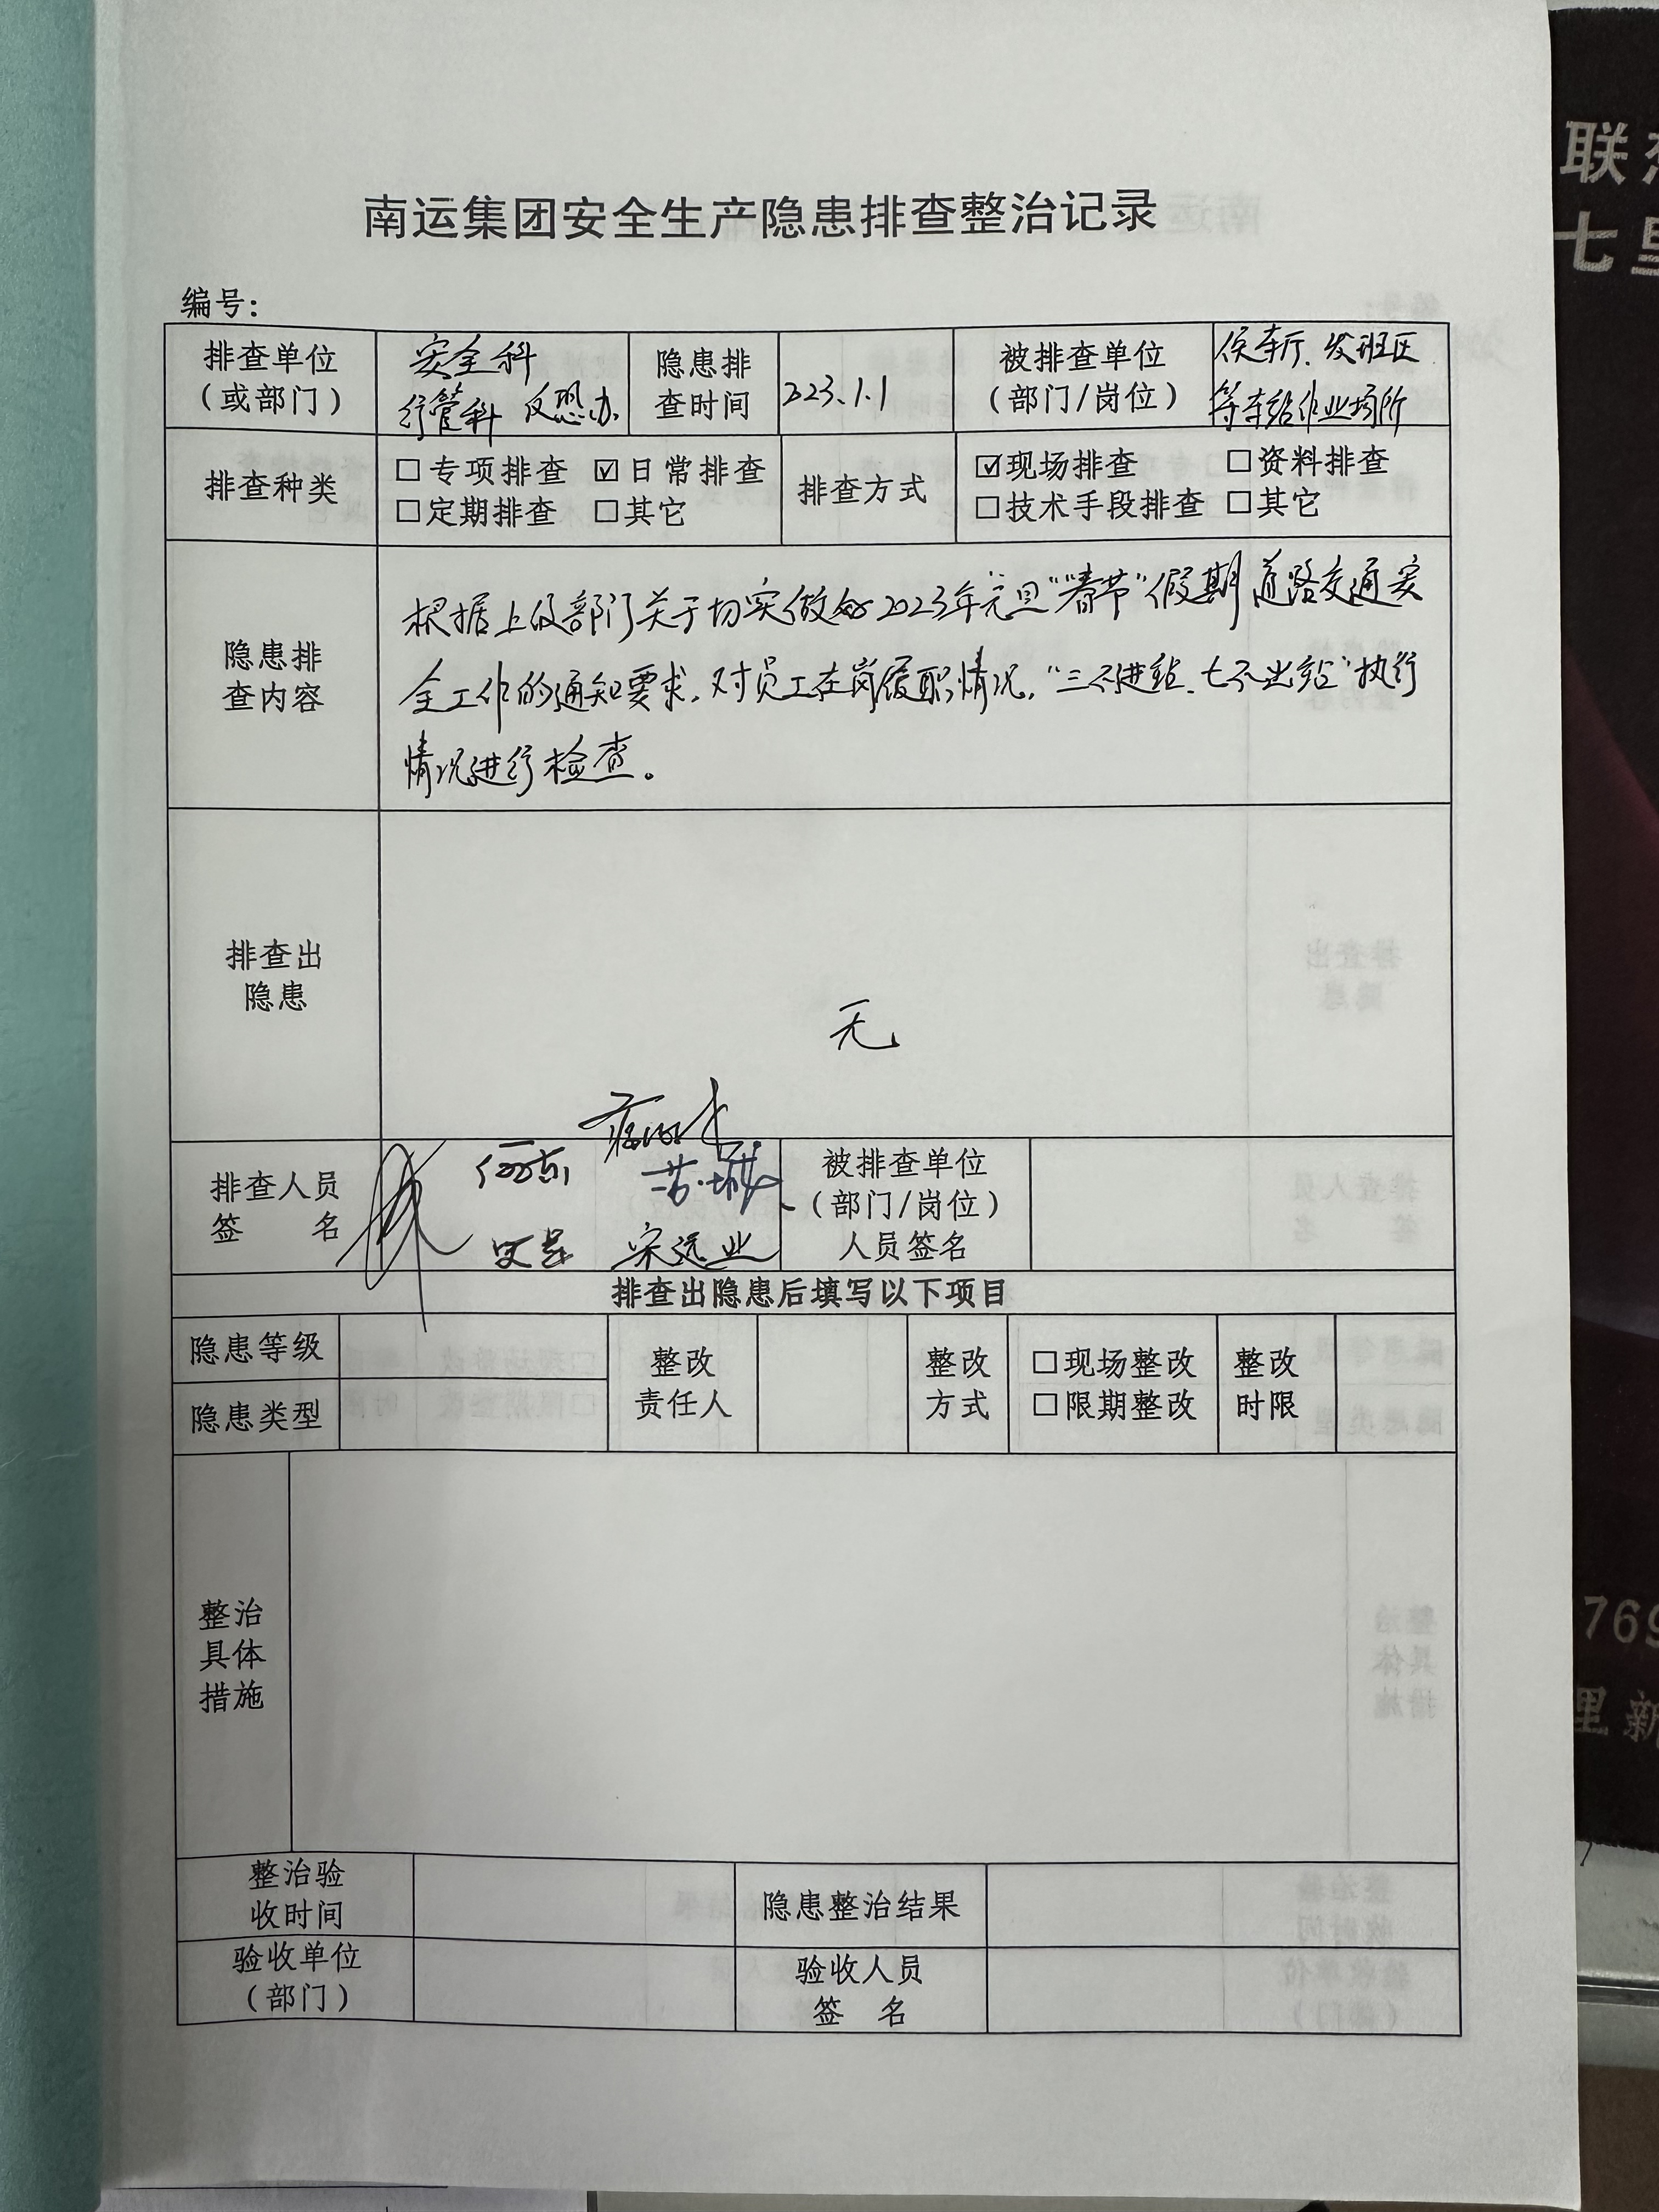 南运集团安全生产隐患排查整治记录
编号：
排查单位
（或部门）
安全科
行管科 反恐办
隐患排
查时间
223.1.1
被排查单位
（部门/岗位）
候车厅、发班区
等车站作业场所
排查种类
□专项排查 ☑日常排查
□定期排查 □其它
排查方式
☑现场排查 □资料排查
□技术手段排查 □其它
隐患排
查内容
根据上级部门关于切实做好2023年“元旦”“春节”假期道路交通安
全工作的通知要求，对员工在岗履职情况，“三不进站、七不出站”执行
情况进行检查。
排查出
隐患
无
排查人员
签 名
宋远业
被排查单位
（部门/岗位）
人员签名
排查出隐患后填写以下项目
隐患等级
隐患类型
整改
责任人
整改
方式
□现场整改
□限期整改
整改
时限
整治
具体
措施
整治验
收时间
隐患整治结果
验收单位
（部门）
验收人员
签 名
联
七里
769
里新